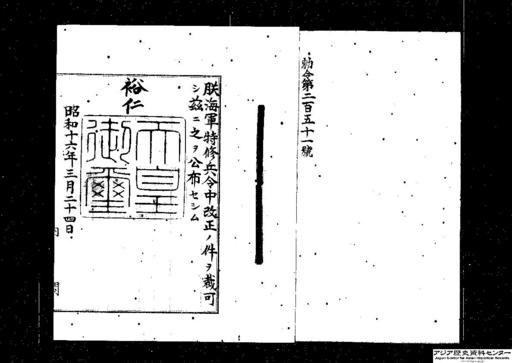 勅令第二百五十一號
朕海軍特修兵令中改正ノ件ヲ裁可
シ茲ニ之ヲ公布セシム
裕仁
天皇
御璽
昭和十六年三月二十四日
内 閣
アジア歴史資料センター
Japan Center for Asian Historical Records